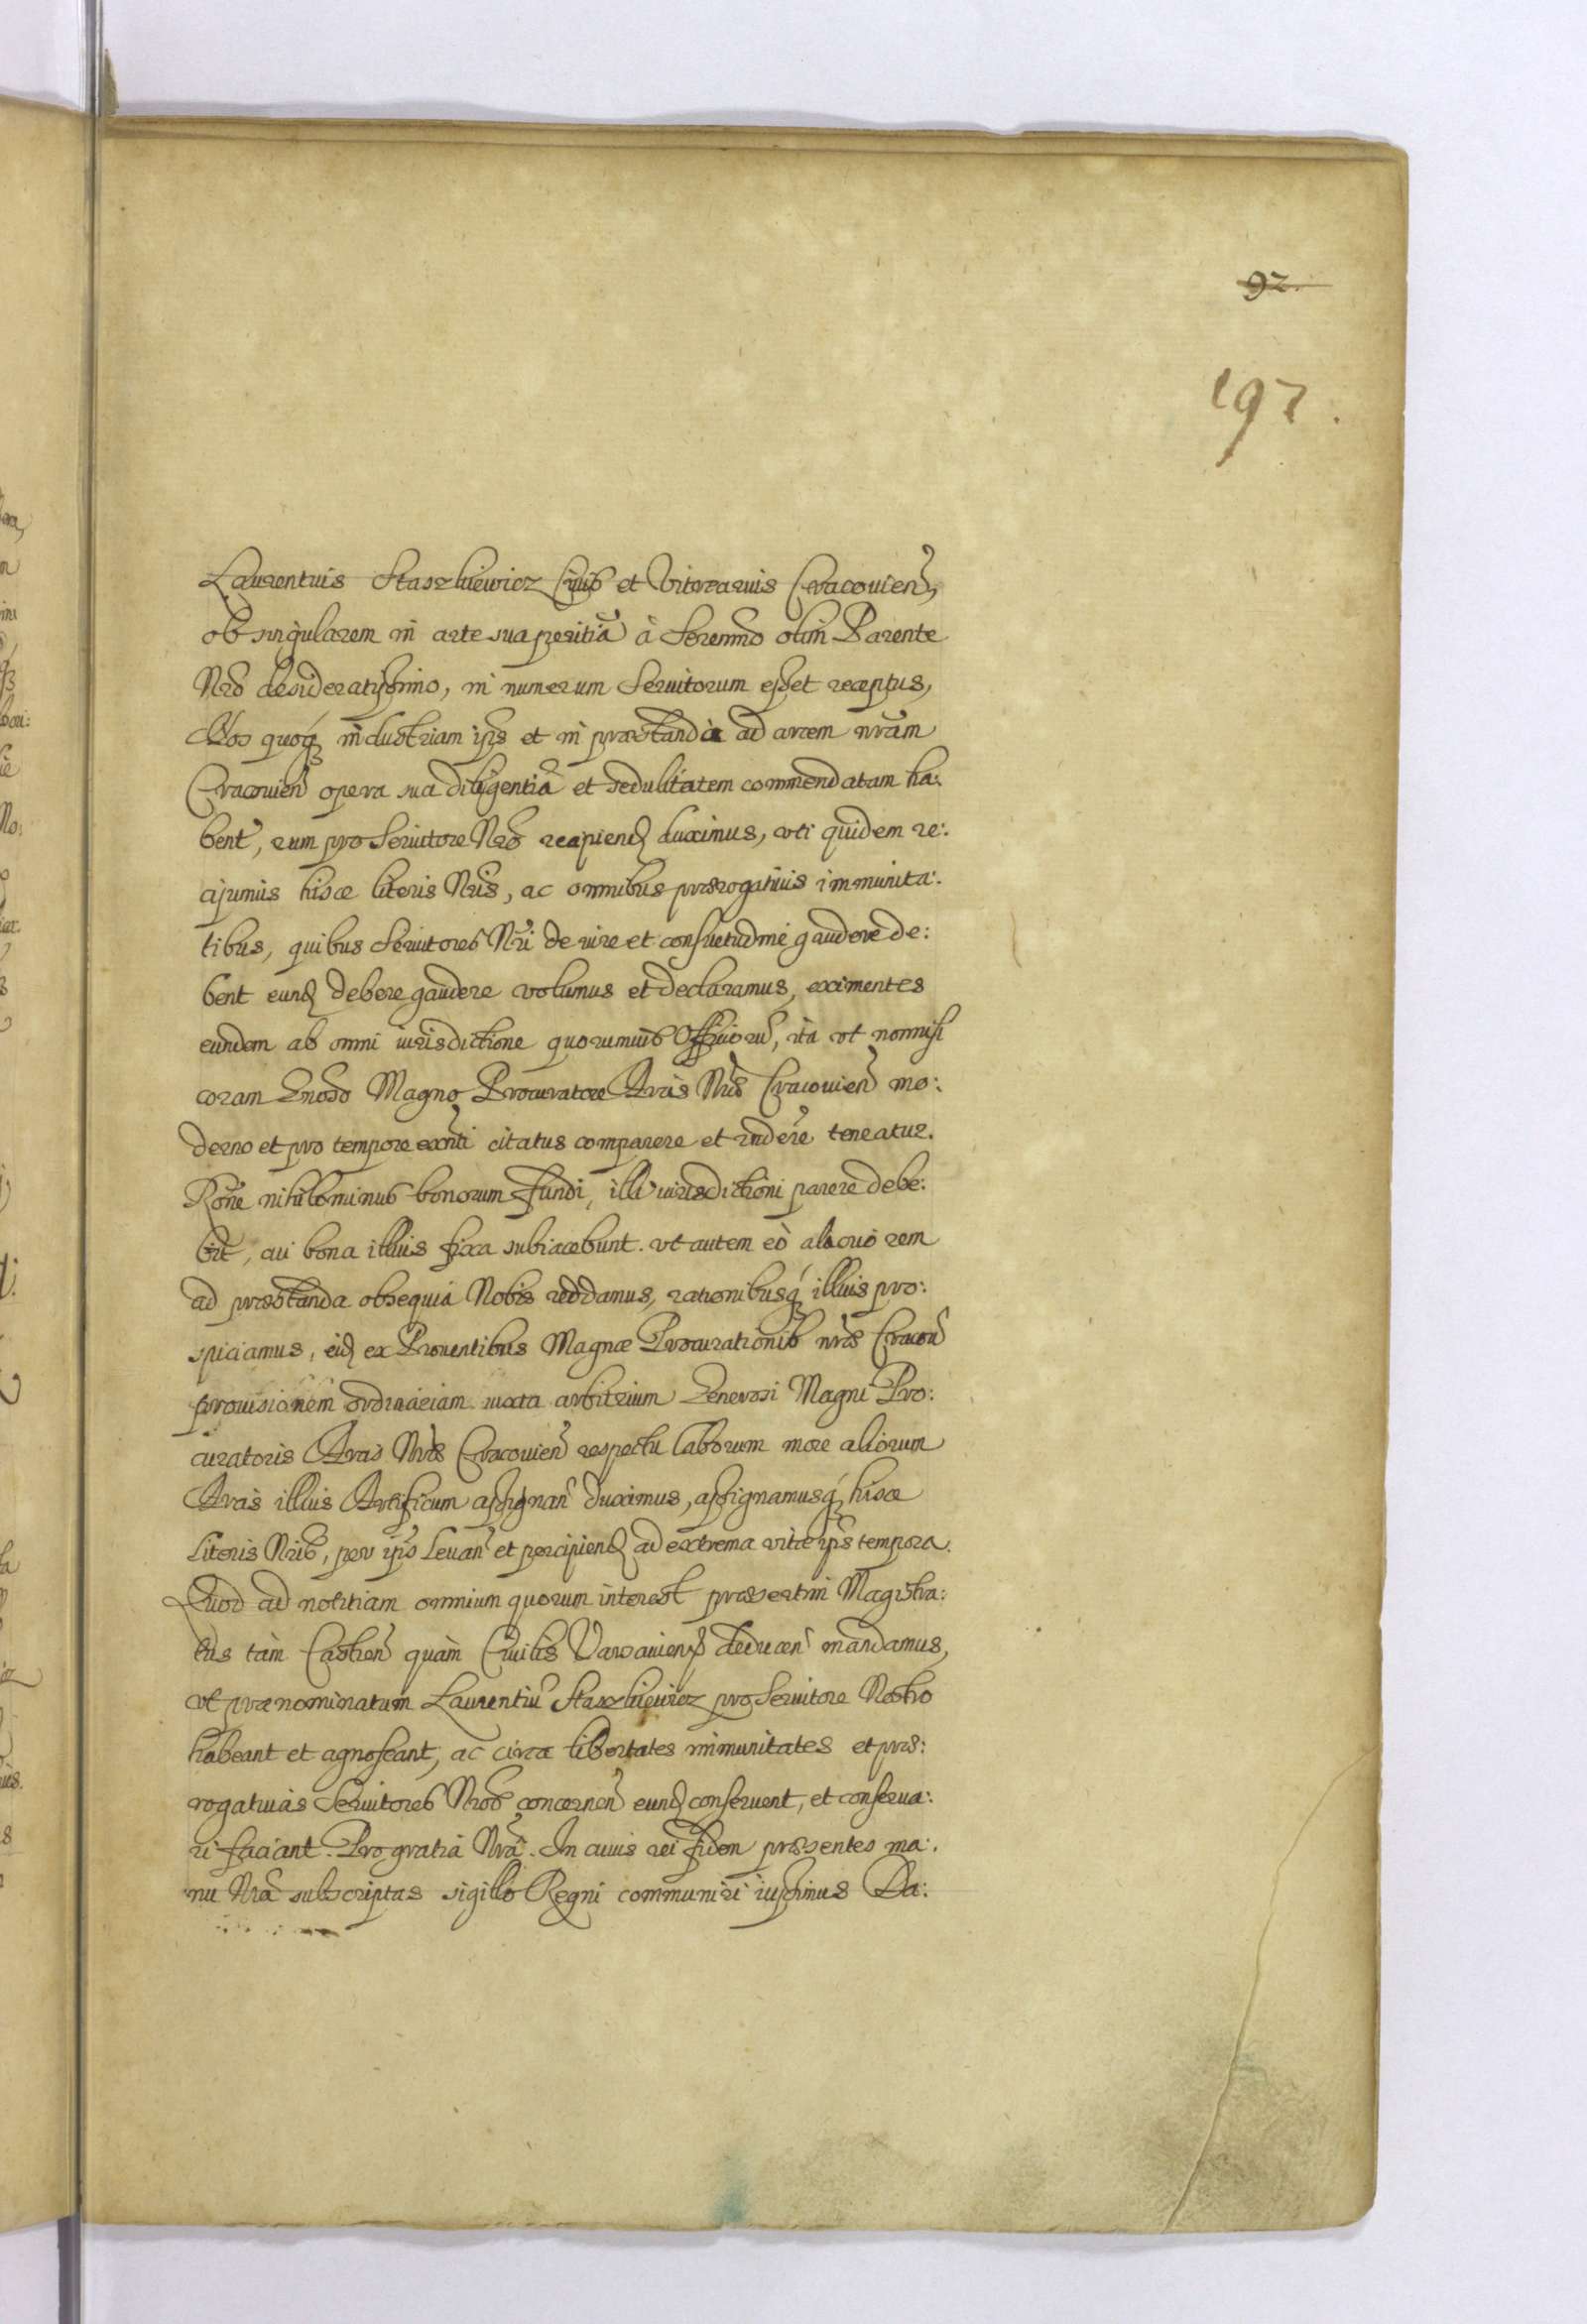 92.
197.
Laurentius Staszkiewicz Civis et Vitrearius Cracovien̄,
ob singularem in arte sua peritiã à Serenmo olim Parente
Nro desideratissimo, in numerum Servitorum esset receptus,
Nos quoq́ industriam ips et in præstanda ad arcem nram
Cracovien̄ opera sua diligentiã et sedulitatem commendatam ha:
bent, eum pro Servitore Nro recipiend duximus, uti quidem re:
cipimus hisce literis Nris, ac omnibus prærogativis immunita:
tibus, quibus Servitores Nri de iure et consuetudine gaudere de:
bent eund debere gaudere volumus et declaramus, eximentes
eundem ab omni iurisdictione quorumvis Officiorũ, ità ut nonnisi
coram Gnoso Magno Procuratore Arcis Nræ Cracovien̄ mo:
derno et pro tempore exnti citatus comparere et rndere teneatur.
Rone nihilominus bonorum fundi, illi iurisdictioni parere debe:
bit, cui bona illius fixa subiacebunt. ut autem eò alacriorem
ad præstanda obsequia Nobis reddamus, rationibusq́ illius pro:
spiciamus, eid ex Proventibus Magnæ Procurationis nræ Cracon̄
provisionem ordinariam iuxta arbitrium Generosi Magni Pro:
curatoris Arcis Nræ Cracovien̄ respectu laborum more aliorum
Arcis illius Artificum assignan̄ duximus, assignamusq́ hisce
Literis Nris, per ips levan̄ et percipiend ad extrema vitæ ips tempora.
Quod ad notitiam omnium quorum interest præsertim Magistra:
tus tàm Castren̄ quàm Civilis Varsaviens deducen̄ mandamus,
ut prænominatum Laurentiũ Staszkiewicz pro Servitore Nostro
habeant et agnoscant, ac circa libertates immunitates et præ:
rogativas Servitores Nros concernen̄ eund conservent, et conserva:
ri faciant. Pro gratia Nra. In cuius rei fidem præsentes ma:
nu Nra subscriptas sigillo Regni communiri iussimus Da: